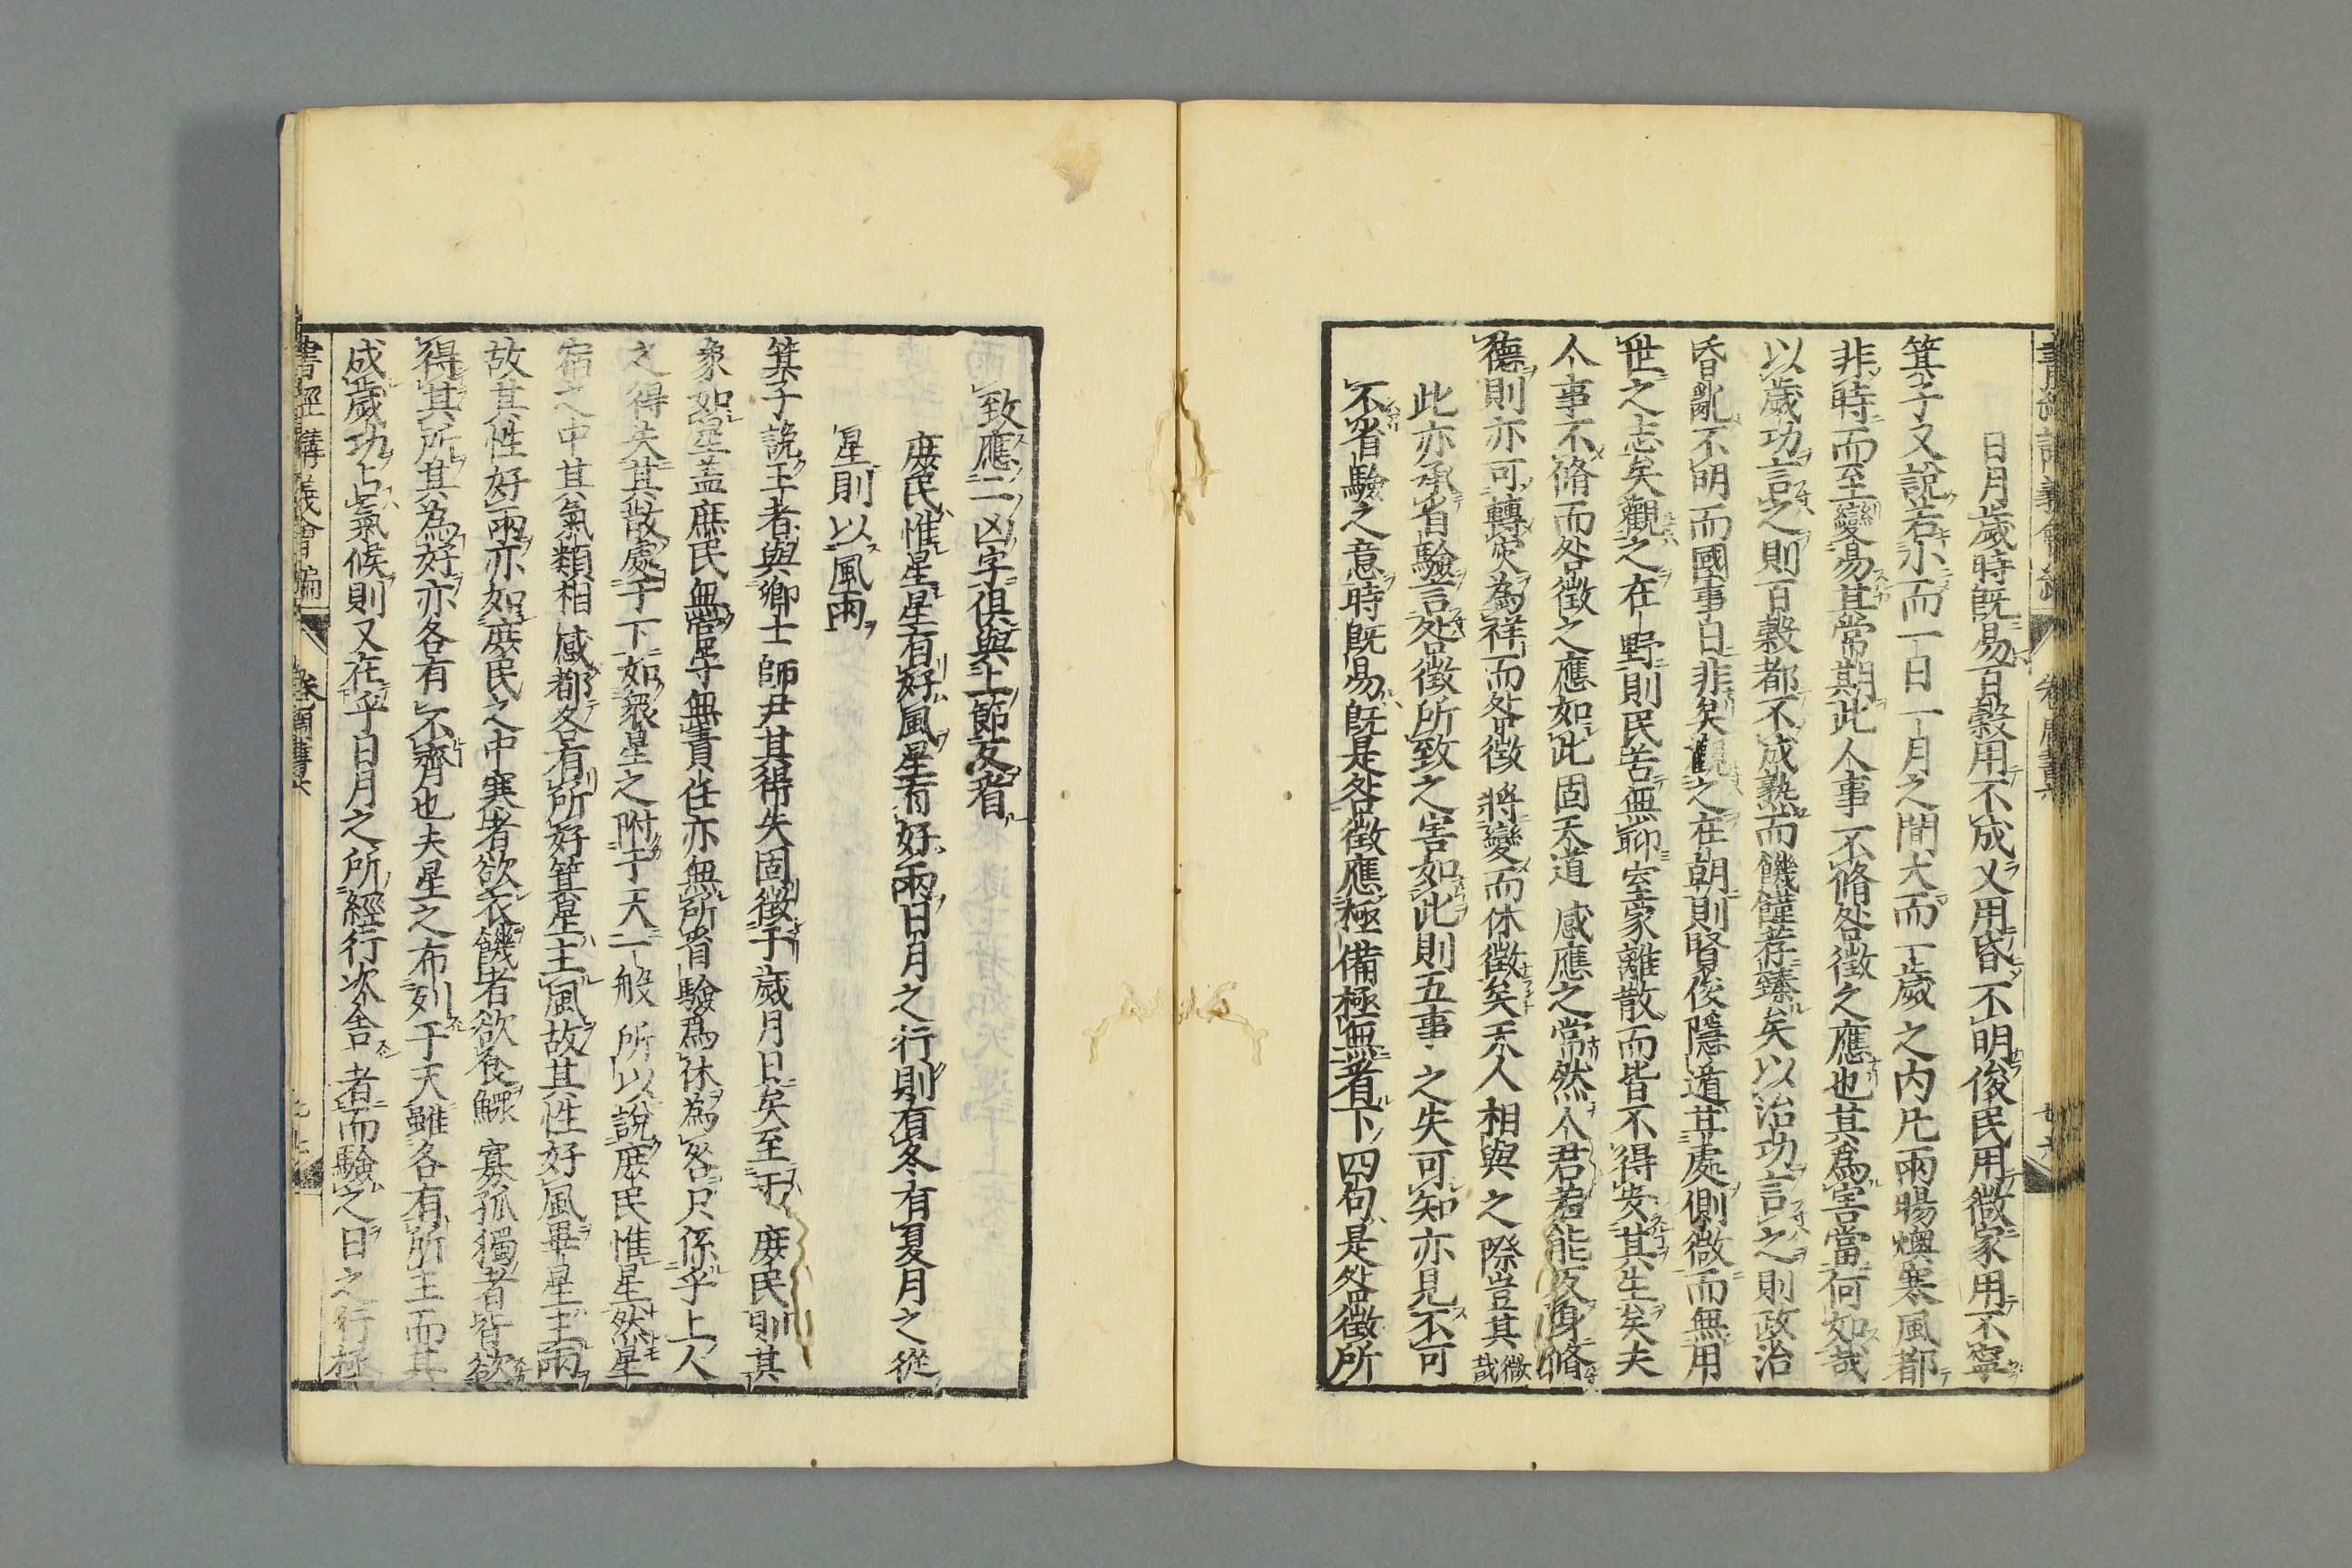 日月歲時既易百穀用不成乂用昏不明俊民用微家用不寧
箕子又說若小而一日一月之間大而一歲之內凡雨暘燠寒風都
非時而至變易其常期此人事不脩咎徵之應也其為害當何如哉
以歲功言之則百穀都不成熟而饑饉荐臻矣以治功言之則政治
昏亂不明而國事日非矣觀之在朝則賢俊隱遁其處側微而無用
世之志矣觀之在野則民苦無聊室家離散而皆不得安其生矣夫
人事不脩而咎徵之應如此固天道感應之常然人君若能反身脩
德則亦可轉災為祥而咎徵將變而休徵矣天人相與之際豈其微哉
此亦承省驗言咎徵所致之害如此則五事之失可知亦見不可
不省驗之意時既易既是咎徵應極備極無者下四句是咎徵所
致應二凶字俱與上節反看
庶民惟星星有好風星有好雨日月之行則有冬有夏月之從
星則以風雨
箕子說王者與卿士師尹其得失固徵于歲月日矣至于庶民則其
象如星盖庶民無官守無責任亦無所省驗為休為咎只係乎上人
之得失其散處于下如衆星之附于天一般所以說庶民惟星然星
宿之中其氣類相感都各有所好箕星主風故其性好風畢星主雨
故其性好雨亦如庶民之中寒者欲衣饑者欲食鰥寡孤獨者皆欲
得其所其為好亦各有不齊也夫星之布列于天雖各有所主而其
成歲功占氣候則又在乎日月之所經行次舍者而驗之日之行極
書經講義會編 卷 周書六